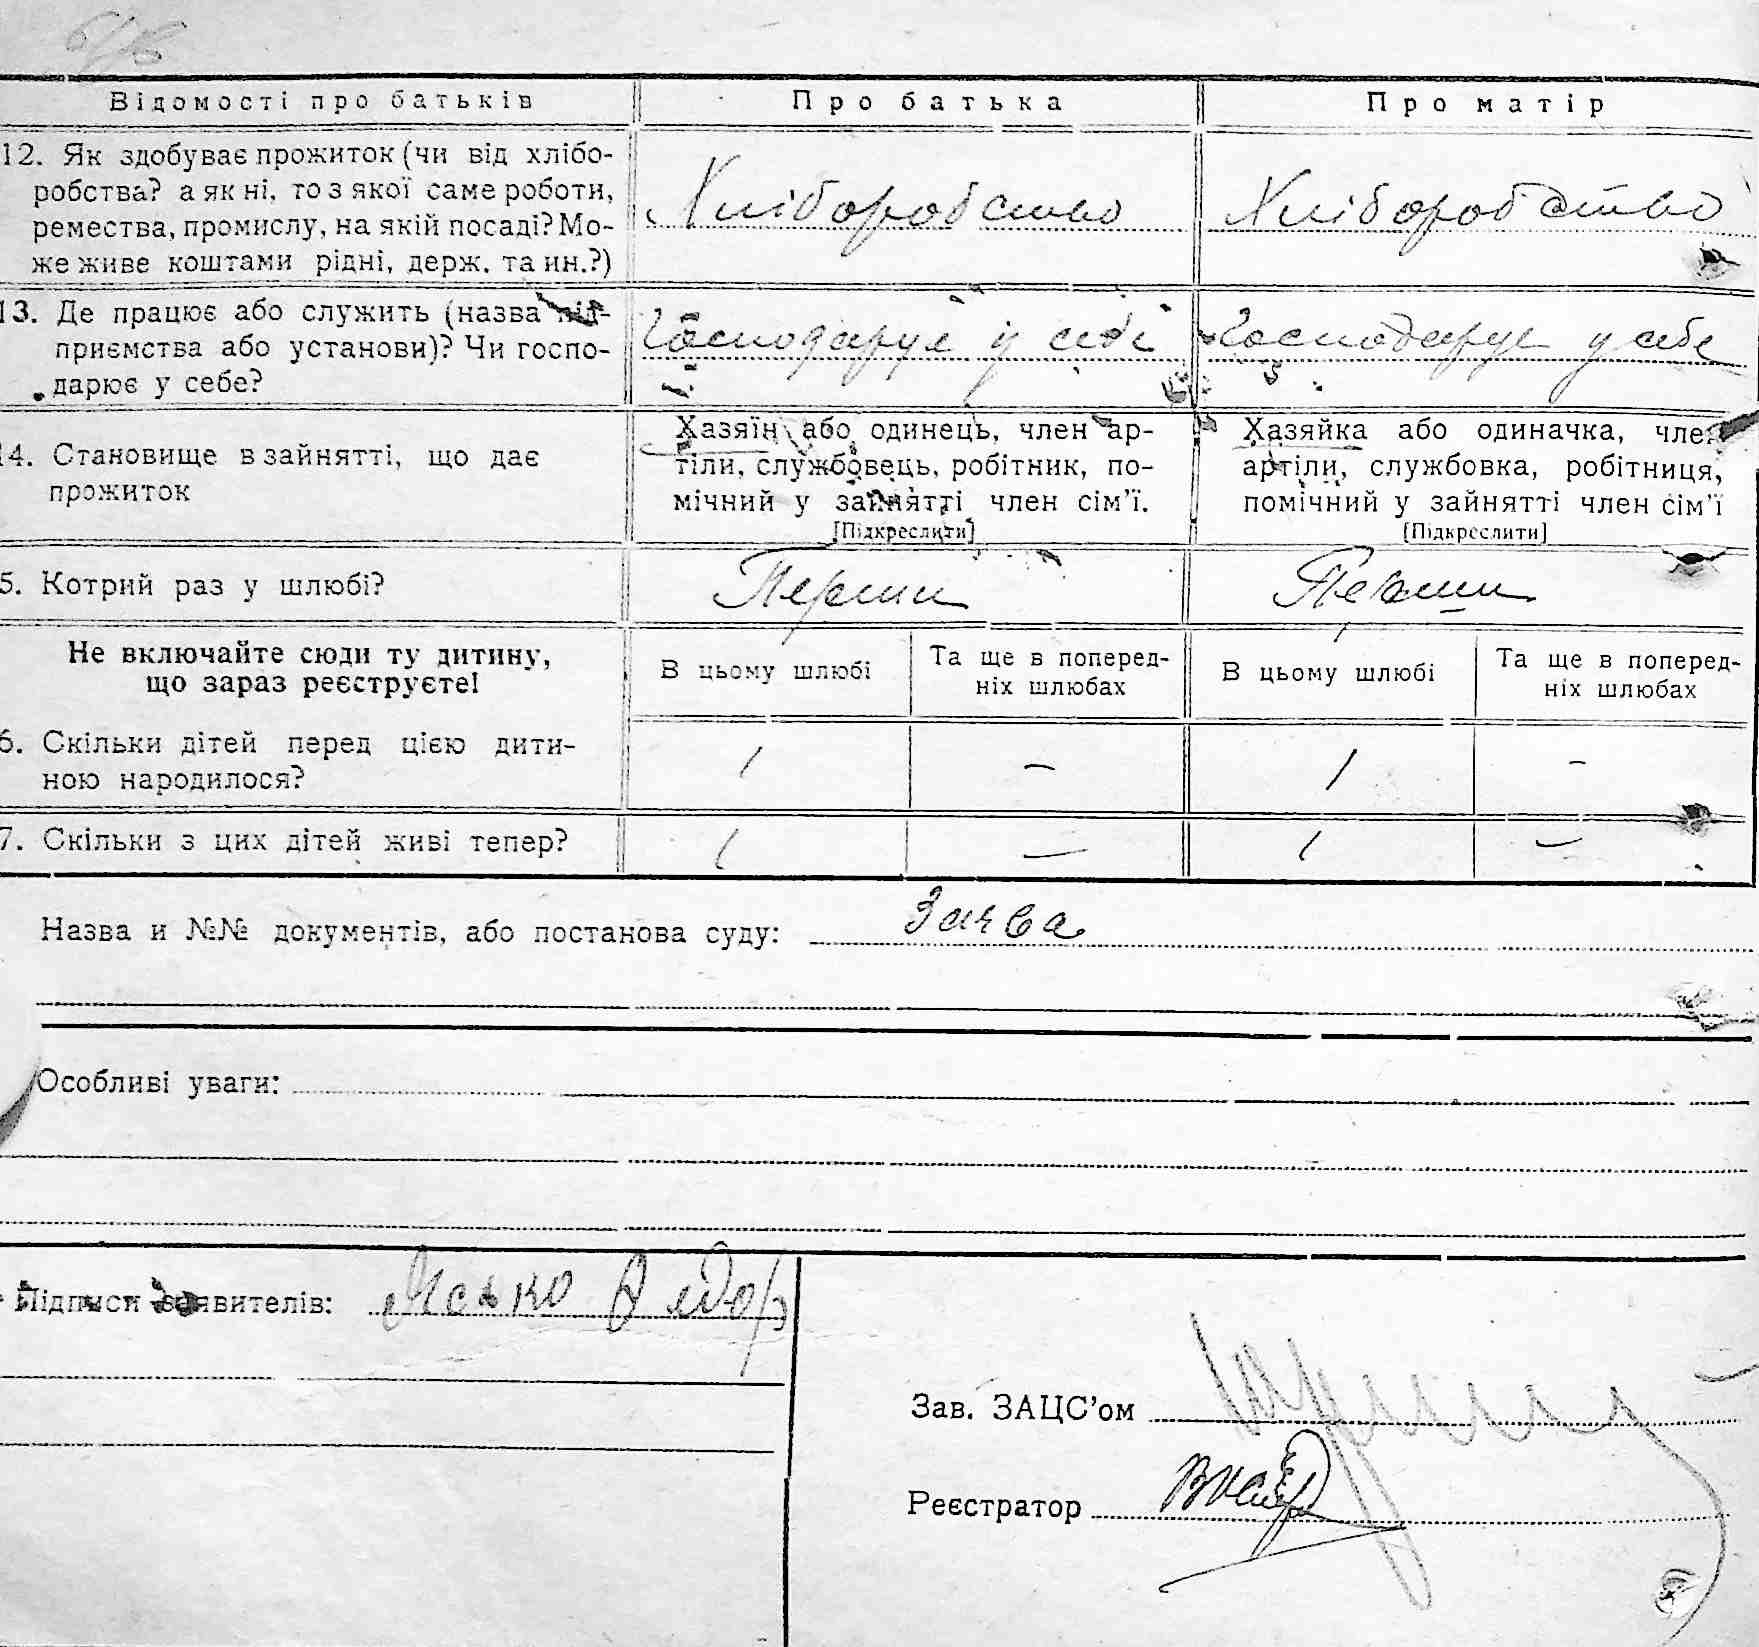 Відомості про батьків
Про батька
Про матір
12. Як здобуває прожиток (чи від хлібо-
робства? а як ні, то з якої саме роботи,
ремества, промислу, на якій посаді? Мо-
же живе коштами рідні, держ. та ин.?)
Хліборобство
Хліборобство
13. Де працює або служить (назва під-
приємства або установи)? Чи госпо-
дарює у себе?
Господарує у себе
Господарує у себе
14. Становище в зайнятті, що дає
прожиток
Хазяїн або одинець, член ар-
тіли, службовець, робітник, по-
мічний у зайнятті член сім'ї.
[Підкреслити]
Хазяйка або одиначка, член
артіли, службовка, робітниця,
помічний у зайнятті член сім'ї
[Підкреслити]
5. Котрий раз у шлюбі?
Перший
Перший
Не включайте сюди ту дитину,
що зараз реєструєте!
В цьому шлюбі
Та ще в поперед-
ніх шлюбах
В цьому шлюбі
Та ще в поперед-
ніх шлюбах
6. Скільки дітей перед цією дити-
ною народилося?
1
–
1
–
7. Скільки з цих дітей живі тепер?
1
–
1
–
Назва и №№ документів, або постанова суду:
Заява
Особливі уваги:
Підписи заявителів:
Зав. ЗАЦС'ом
Реєстратор